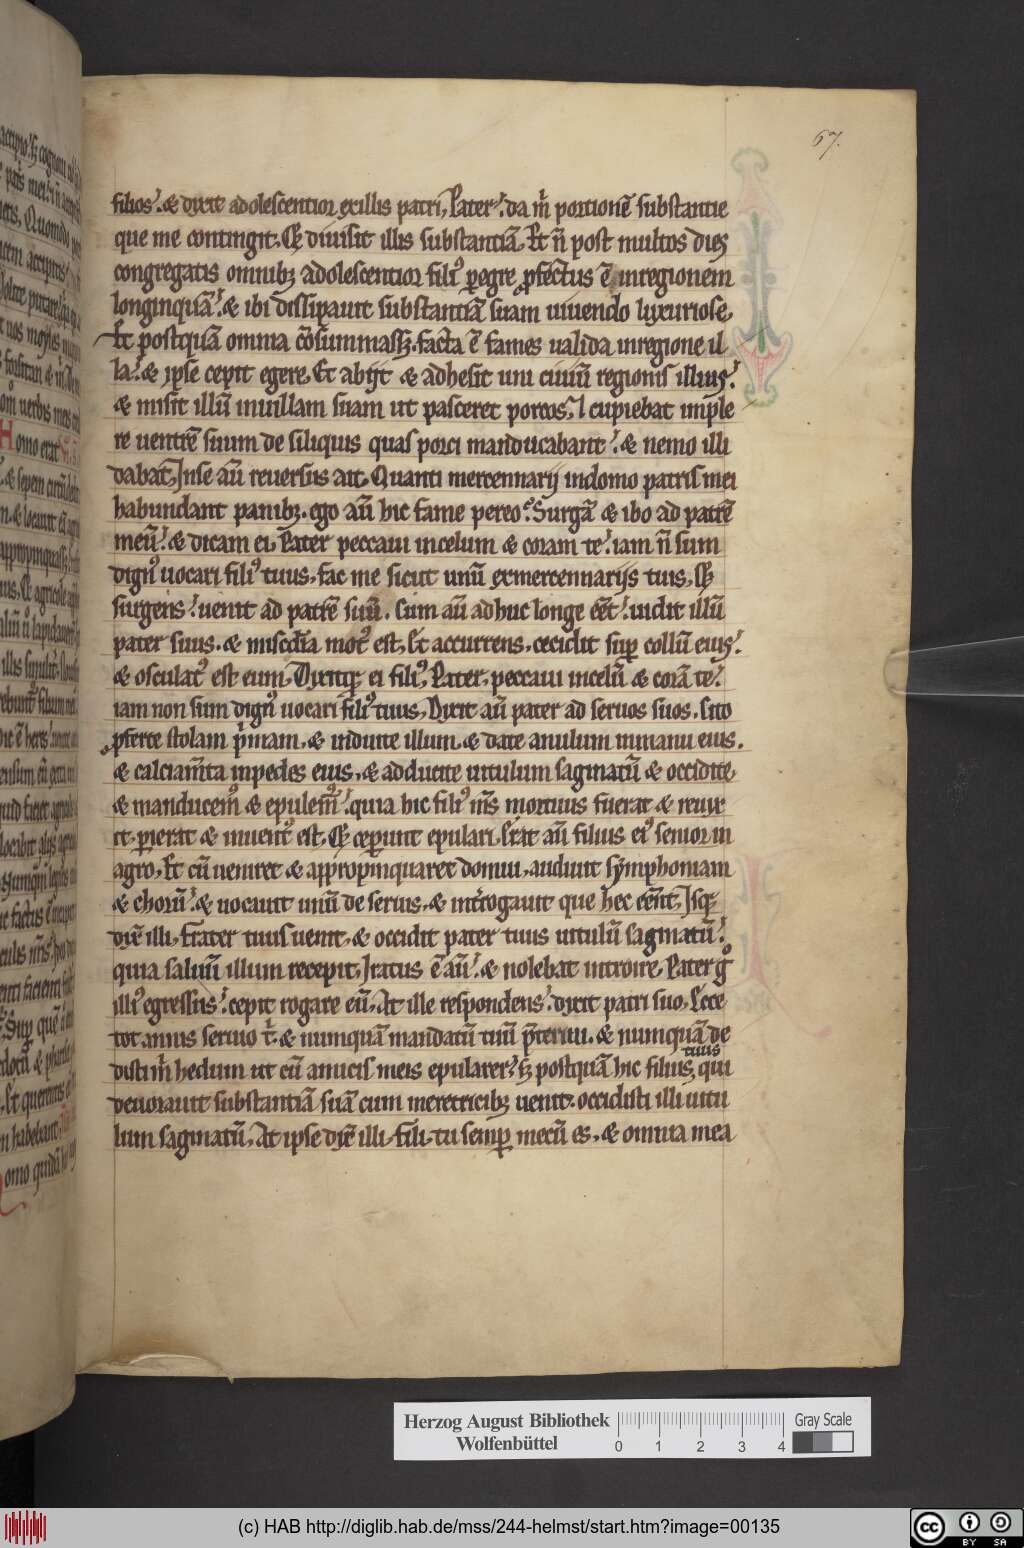 67.
filios. & dixit adolescentior exillis patri, Pater. da m̄ portionē substantie
que me contingit. Et diuisit illis substantiā. Et ñ post multos dies
congregatis omnibꝫ adolescentior filiꝰ ꝑegre ꝓfectus ē inregionem
longinquā. & ibi dissipauit substantiā suam uiuendo luxuriose.
Et postquā omnia cōsummassꝫ. facta ē fames ualida inregione il
la. & ipse cepit egere. Et abijt & adhesit uni ciuiū regionis illius.
& misit illū inuillam suam ut pasceret porcos. Et cupiebat imple
re uentrē suum de siliquis quas porci manducabant. & nemo illi
dabat. Inse aū reuersus ait. Quanti mercennarij indomo patris mei
habundant panibꝫ. ego aū hic fame pereo. Surgā & ibo ad patrē
meū. & dicam ei. Pater peccaui incelum & coram te. iam ñ sum
dignꝰ uocari filiꝰ tuus. fac me sicut unū exmercennarijs tuis. Et
surgens. uenit ad patrē suū. Cum aū adhuc longe eēt. uidit illū
pater suus. & misc̄dia motꝰ est. Et accurrens. cecidit suꝑ collū eius.
& osculatꝰ est eum. Dixitqꝫ ei filiꝰ. Pater. peccaui incelū & corā te.
iam non sum dignꝰ uocari filiꝰ tuus. Dixit aū pater ad seruos suos. Cito
ꝓferte stolam p̄mam. & induite illum. & date anulum inmanu eius.
& calciam̄ta inpedes eius. & adducite uitulum saginatū & occidite.
& manducemꝰ & epulemꝰ. quia hic filiꝰ m̄s mortuus fuerat & reuix
it. ꝑierat & inuentꝰ est. Et ceperunt epulari. Erat aū filius eiꝰ senior in
agro. Et cū ueniret & appropinquaret domui. audiuit symphoniam
& chorū. & uocauit unū de seruis. & int̄rogauit que hec eēnt. Isqꝫ
dix̄ illi. Frater tuus uenit. & occidit pater tuus uitulū saginatū.
quia saluū illum recepit. Iratus ē aū. & nolebat introire. Pater gͦ
illiꝰ egressus. cepit rogare eū. At ille respondens. dixit patri suo. Ecce
tot annis seruo t̄. & numquā mandatū tuū p̄teriui. & numquā de
disti m̄ hedum ut cū amicis meis epularer. sꝫ postquā hic filius tuus qui
deuorauit substantiā suā cum meretricibꝫ uenit. occidisti illi uitu
lum saginatū. At ipse dix̄ illi. Fili. tu semꝑ mecū es. & omnia mea
Herzog August Bibliothek
Wolfenbüttel
0 1 2 3 4
Gray Scale
(c) HAB http://diglib.hab.de/mss/244-helmst/start.htm?image=00135
cc BY SA